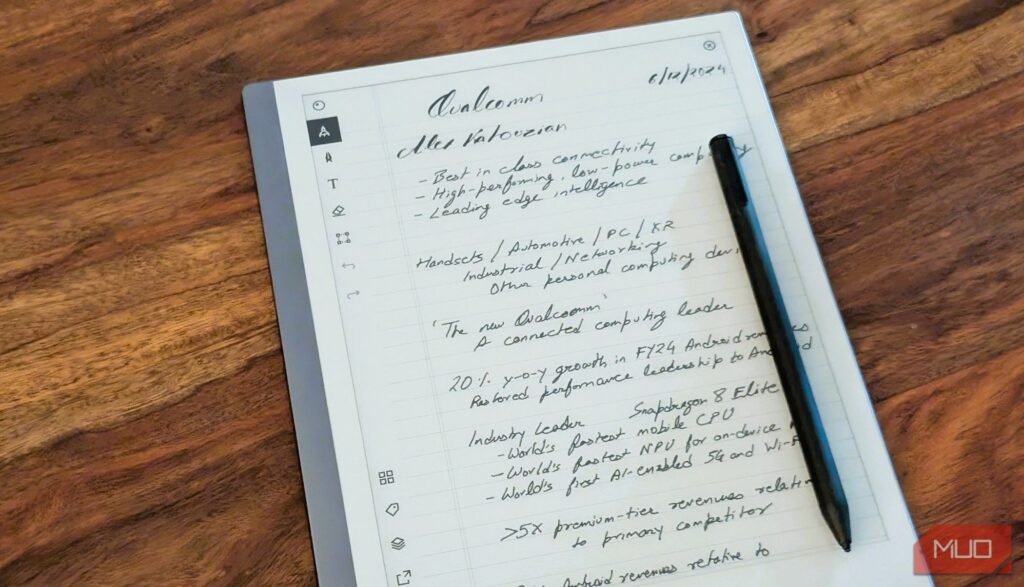 Qualcomm
6/12/2024
Alex Katouzian
- Best in class connectivity
- High-performing, low-power
- Leading edge intelligence
Handsets / Automotive / PC / XR
Industrial / Networking
Other personal computing
'The new Qualcomm'
A connected computing leader
20% y-o-y growth in FY24 Android
Restored performance leadership to
Industry Leader Snapdragon 8 Elite
- World's fastest mobile CPU
- World's fastest NPU for on-device
- World's first AI-enabled 5G and
>5X premium-tier revenues
to primary competitor
Android revenues relative to
T
MUO